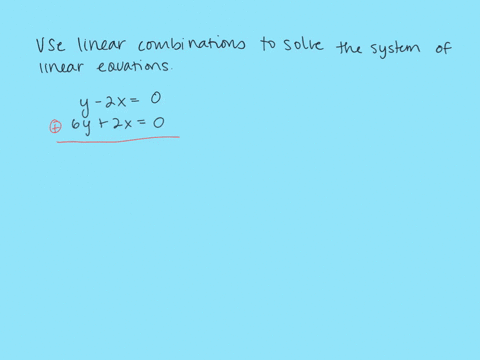 Use linear combinations to solve the system of
linear equations.
y - 2x = 0
⊕ 6y + 2x = 0